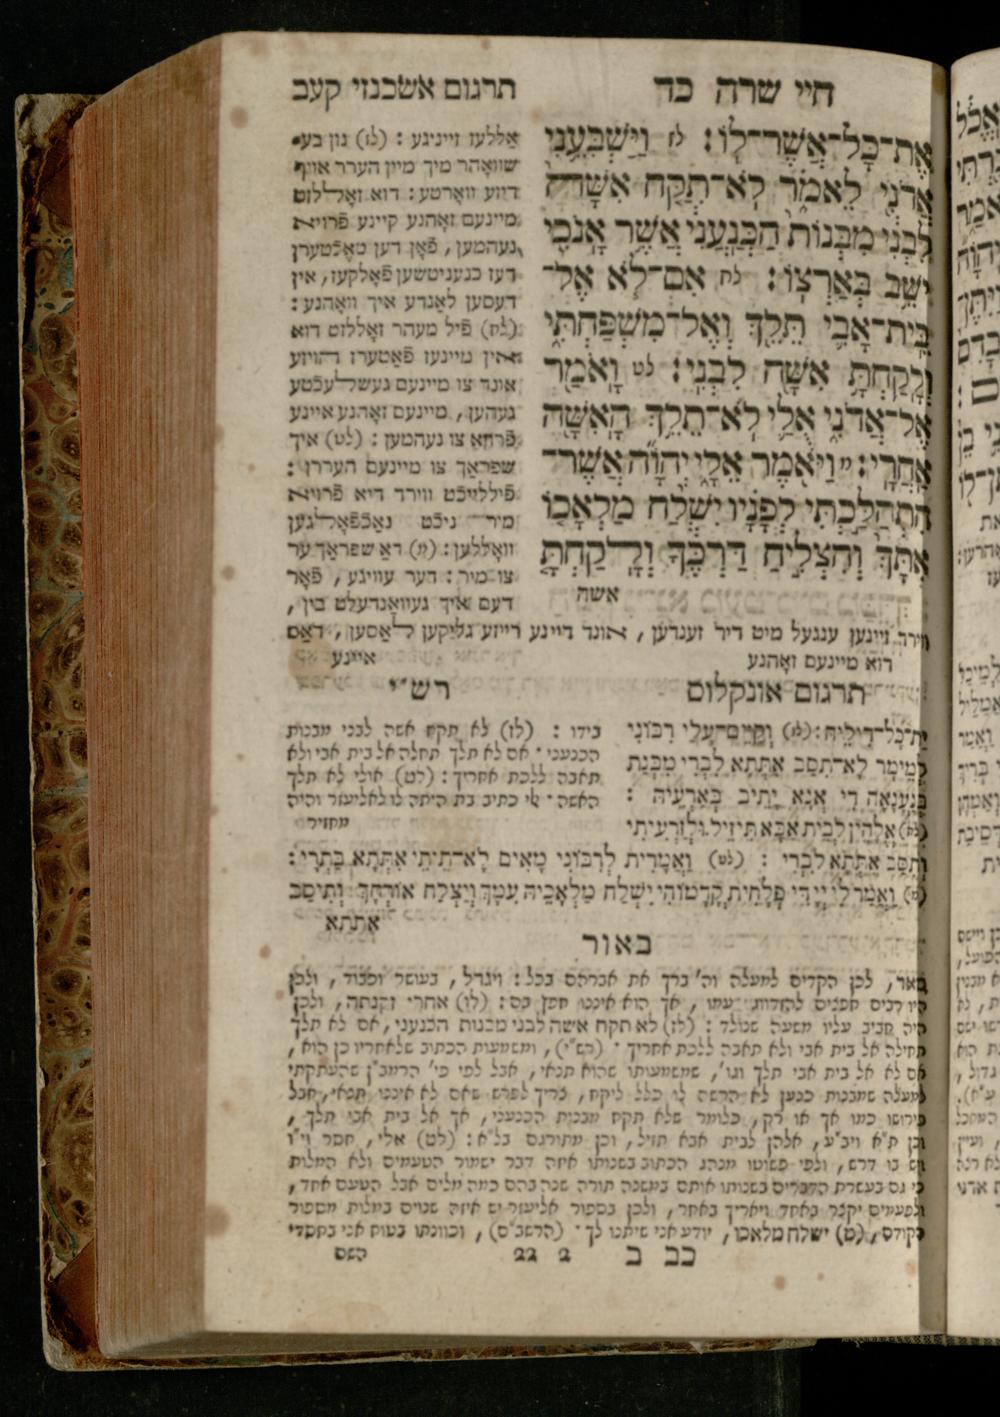 חיי שרה כד
תרגום אשכנזי קעב
אֶת־כָּל־אֲשֶׁר־לֽוֹ׃ לז וַיַּשְׁבִּעֵ֥נִי
אֲדֹנִ֖י לֵאמֹ֑ר לֹֽא־תִקַּ֤ח אִשָּׁה֙
לִבְנִ֔י מִבְּנוֹת֙ הַֽכְּנַעֲנִ֔י אֲשֶׁ֥ר אָנֹכִ֖י
יֹשֵׁ֥ב בְּאַרְצֽוֹ׃ לח אִם־לֹ֧א אֶל־
בֵּֽית־אָבִ֛י תֵּלֵ֖ךְ וְאֶל־מִשְׁפַּחְתִּ֑י
וְלָקַחְתָּ֥ אִשָּׁ֖ה לִבְנִֽי׃ לט וָאֹמַ֖ר
אֶל־אֲדֹנִ֑י אֻלַ֛י לֹא־תֵלֵ֥ךְ הָאִשָּׁ֖ה
אַחֲרָֽי׃ מ וַיֹּ֖אמֶר אֵלָ֑י יְהֹוָ֞ה אֲשֶׁר־
הִתְהַלַּ֣כְתִּי לְפָנָ֗יו יִשְׁלַ֨ח מַלְאָכ֤וֹ
אִתָּךְ֙ וְהִצְלִ֣יחַ דַּרְכֶּ֔ךָ וְלָקַחְתָּ֤
אשה
אַללעז זייניגע : (לז) נון בע־
שוואהר מיך מיין הערר אויף
דיזע ווארטע : דוא זאָללזט
מיינעם זאָהנע קיינע פֿרויא
נעהמען , פֿאָן דען טאָכטערן
דעז כנעניטשען פֿאָלקעז , אין
דעסען לאַנדע איך וואָהנע :
(לח) פֿיל מעהר זאָללזט דוא
אין מיינעז פֿאָטערז הויזע
אונד צו מיינעם געשלעכטע
געהען , מיינעם זאָהנע איינע
פֿרויא צו נעהמען : (לט) איך
שפראַך צו מיינעם העררן :
פֿיללייכט ווירד דיא פֿרויא
מיר ניכט נאָכפֿאָלגען
וואָללען : (מ) דאַ שפראַך ער
צו מיר : דער עוויגע , פֿאָר
דעם איך געוואַנדעלט בין ,
ווירד זיינען ענגעל מיט דיר זענדען , אונד דיינע רייזע גליקען לאַסען , דאַס
דוא מיינעם זאָהנע איינע
תרגום אונקלוס
יָת־כָּל־דִּילֵיהּ : (לז) וְקַיֵּים־עֲלַי רִבּוֹנִי
לְמֵימַר לָא־תִסַּב אִתְּתָא לִבְרִי מִבְּנַת
כְּנַעֲנָאָה דִּי אֲנָא יָתֵיב בְּאַרְעֵיהּ :
(לח) אֱלָהֵין לְבֵית אַבָּא תֵּיזֵיל וּלְזַרְעִיתִי
וְתִסַּב אִתְּתָא לִבְרִי : (לט) וַאֲמָרִית לְרִבּוֹנִי מָאִים לָא־תֵיתֵי אִתְּתָא בַּתְרָי :
(מ) וַאֲמַר לִי יְיָ דִּי פְלָחִית קֳדָמוֹהִי יִשְׁלַח מַלְאֲכֵיהּ עִמָּךְ וְיַצְלַח אוֹרְחָךְ וְתִיסַּב
אִתְּתָא
רש״י
בידו : (לז) לא תקח אשה לבני מבנות
הכנעני · אם לא תלך תחלה אל בית אבי ולא
תאבה ללכת אחריך : (לט) אולי לא תלך
האשה · אלי כתיב בת היתה לו לאליעזר והיה
מחזיר
באור
באר , לכן הקדים למעלה וה' ברך את אברהם בכל : ויגדל , בעושר וכבוד , ולכן
היו רבים חפצים להזדווג עמו , אך הוא איננו חפץ בם : (לו) אחרי זקנתה , ולכן
היה חביב עליו משעה שנולד : (לז) לא תקח אשה לבני מבנות הכנעני , אם לא תלך
תחילה אל בית אבי ולא תאבה ללכת אחריך · (רש״י) , ומשמעות הכתוב שלאחריו כן הוא ,
אם לא אל בית אבי תלך וגו' , שמשמעותו שהוא תנאי , אבל לפי פי' הרמב״ן שהעתקתי
למעלה שמבנות כנען לא הרשה לו כלל ליקח , צריך לפרש שאם לא איננו תנאי , אבל
פירושו כמו אך או רק , כלומר שלא תקח מבנות הכנעני , אך אל בית אבי תלך ,
וכן ת״א ויב״ע , אלהן לבית אבא תזיל , וכן מתורגם בל״א : (לט) אלי , חסר וי״ו
ויש בו דרש , ולפי פשוטו מנהג הכתוב בשנותו איזה דבר ישמור הטעמים ולא המלות
כי גם בעשרת הדברים בשנותו אותם במשנה תורה שנה בהם כמה מלים אבל הטעם אחד ,
ולפעמים יקצר באחד ויאריך באחר , ולכן בספור אליעזר יש איזה שנוים במלות מספור
הקודם , (מ) ישלח מלאכו , יודע אני שיתנו לך · (הרשב״ם) , וכוונתו בטוח אני בחסדי
כב ב 2 22 השם